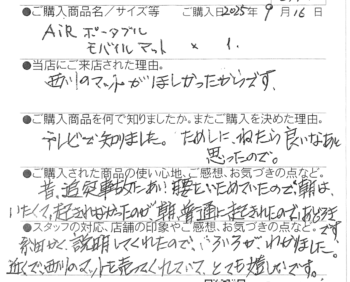 ●ご購入商品名／サイズ等　ご購入日2025年9月16日
AiR ポータブル
モバイルマット × 1.
●当店にご来店された理由。
西川のマットがほしかったからです。
●ご購入商品を何で知りましたか。またご購入を決めた理由。
テレビで知りました。ためしに、ねたら良いなあと
思ったので。
●ご購入された商品の使い心地、ご感想、お気づきの点など。
昔、追突事故にあい腰をいためていたので朝は、
いたくて、起きれなかったのが朝、普通に起きれたので、おどろき
です
●スタッフの対応、店舗の印象やご感想、お気づきの点など。
細かく、説明してくれたので、いろいろが、わかりました。
近くで、西川のマットを売ってくれていて、とても嬉しいです。